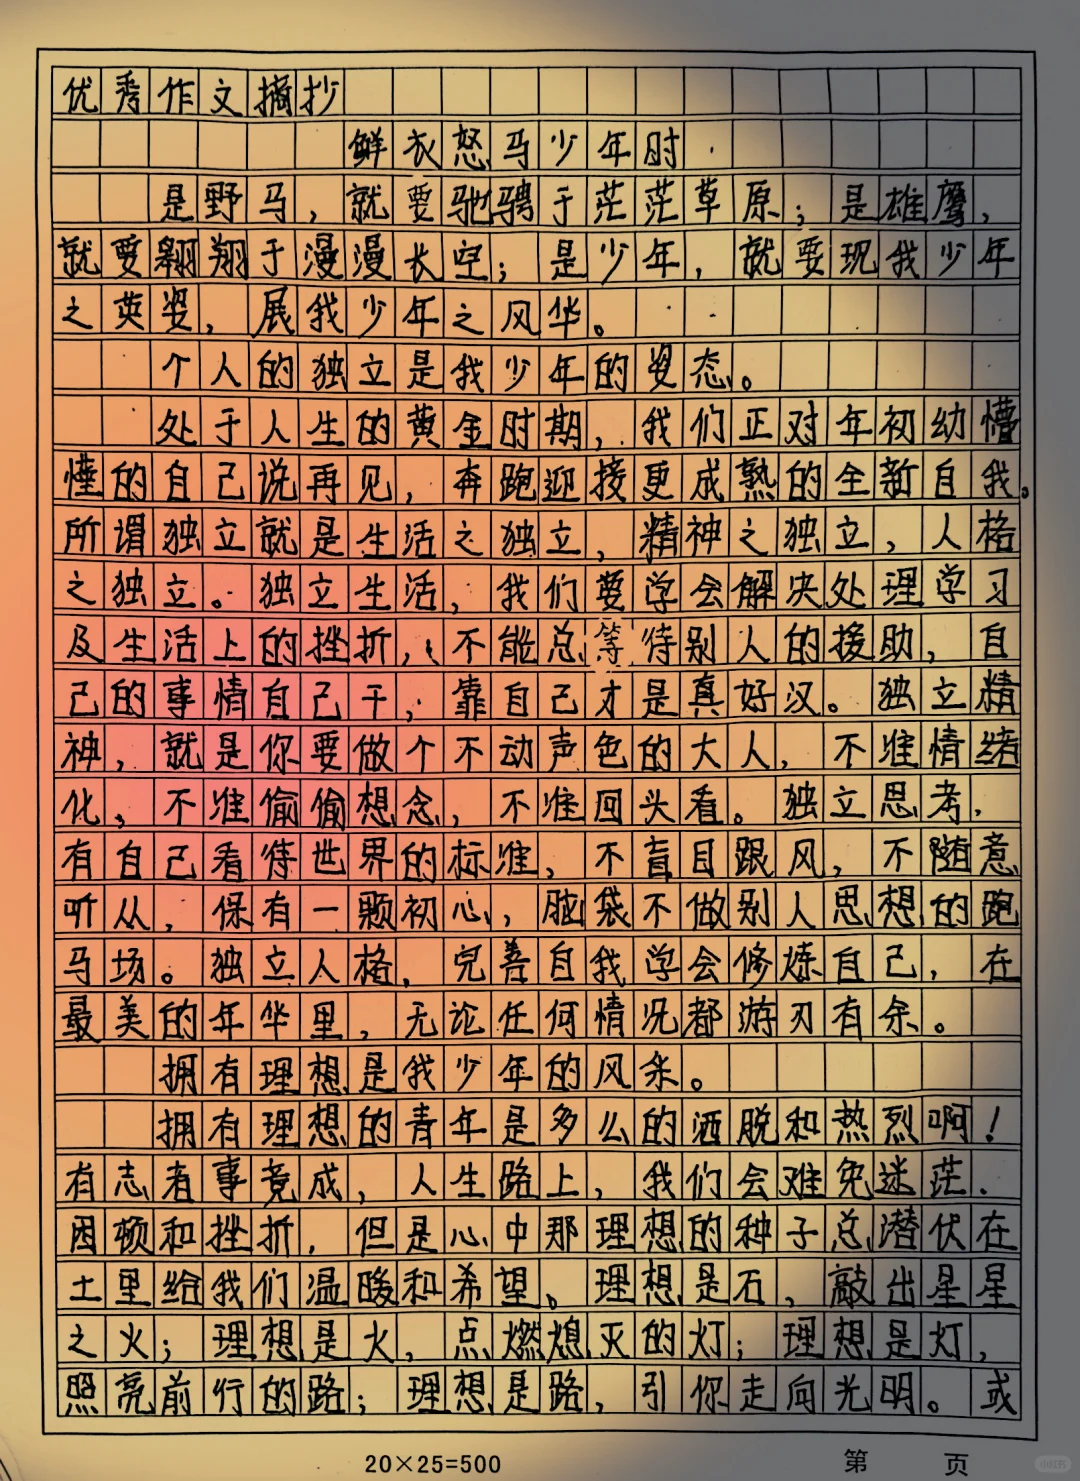 优秀作文摘抄
鲜衣怒马少年时
是野马，就要驰骋于茫茫草原；是雄鹰，
就要翱翔于漫漫长空；是少年，就要现我少年
之英姿，展我少年之风华。
个人的独立是我少年的姿态。
处于人生的黄金时期，我们正对年初幼懵
懂的自己说再见，奔跑迎接更成熟的全新自我。
所谓独立就是生活之独立，精神之独立，人格
之独立。独立生活，我们要学会解决处理学习
及生活上的挫折，不能总等待别人的援助，自
己的事情自己干，靠自己才是真好汉。独立精
神，就是你要做个不动声色的大人，不准情绪
化，不准偷偷想念，不准回头看。独立思考，
有自己看待世界的标准，不盲目跟风，不随意
听从，保有一颗初心，脑袋不做别人思想的跑
马场。独立人格，完善自我学会修炼自己，在
最美的年华里，无论任何情况都游刃有余。
拥有理想是我少年的风采。
拥有理想的青年是多么的洒脱和热烈啊！
有志者事竟成，人生路上，我们会难免迷茫、
困顿和挫折，但是心中那理想的种子总潜伏在
土里给我们温暖和希望。理想是石，敲出星星
之火；理想是火，点燃熄灭的灯；理想是灯，
照亮前行的路；理想是路，引你走向光明。或
20×25=500
第 页
小红书